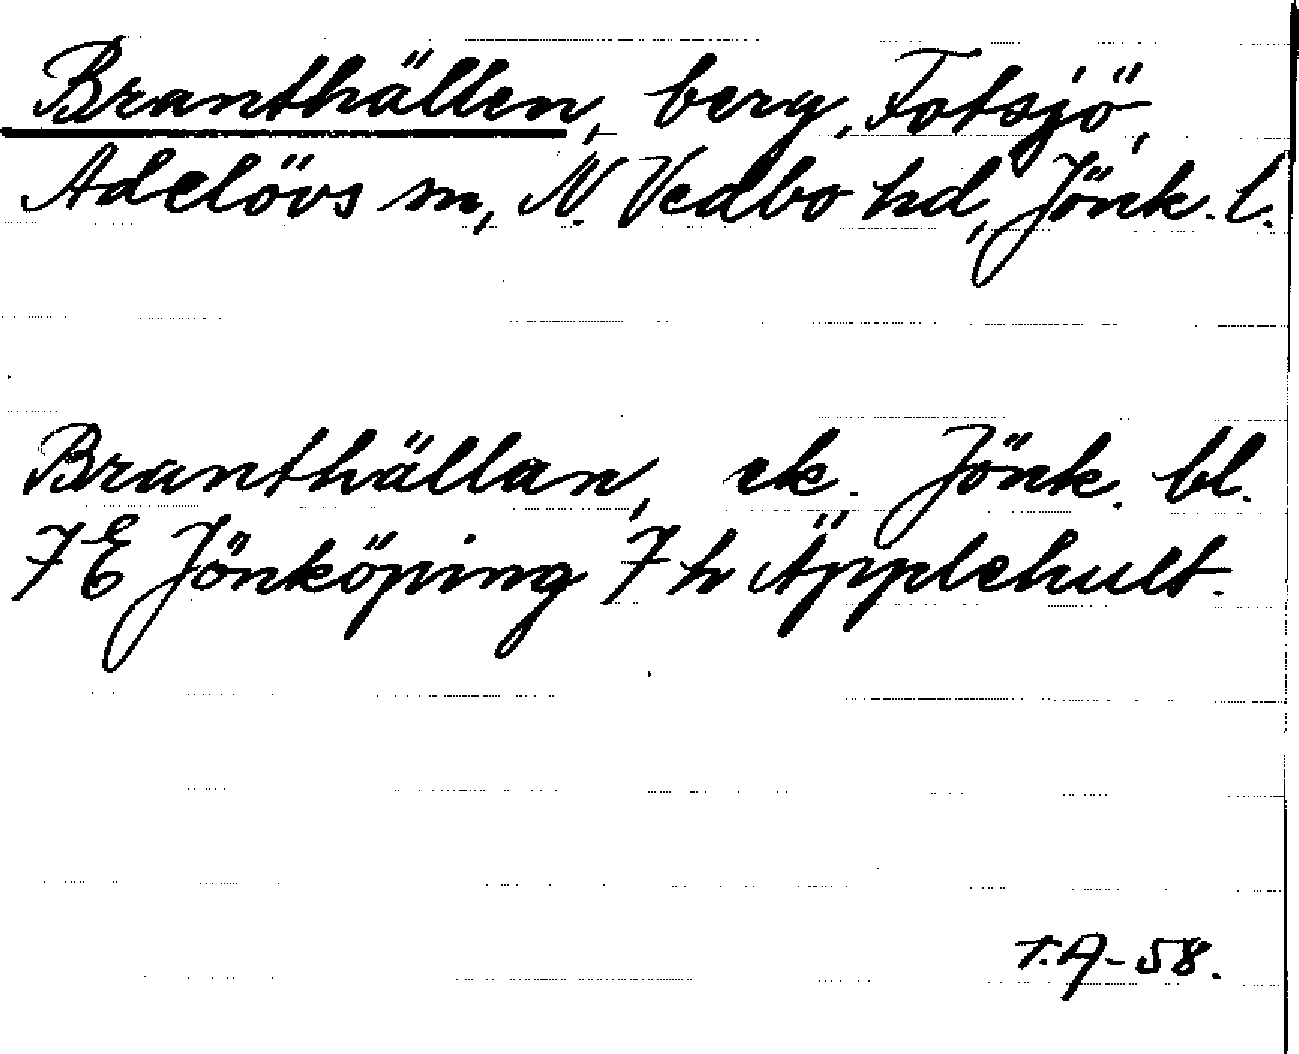 Branthällen, berg, Fotsjö,
Adelövs sn, N. Vedbo hd, Jönk. l.
Branthällan, ek. Jönk. bl.
7E Jönköping 7h Äpplehult.
T.A-58.